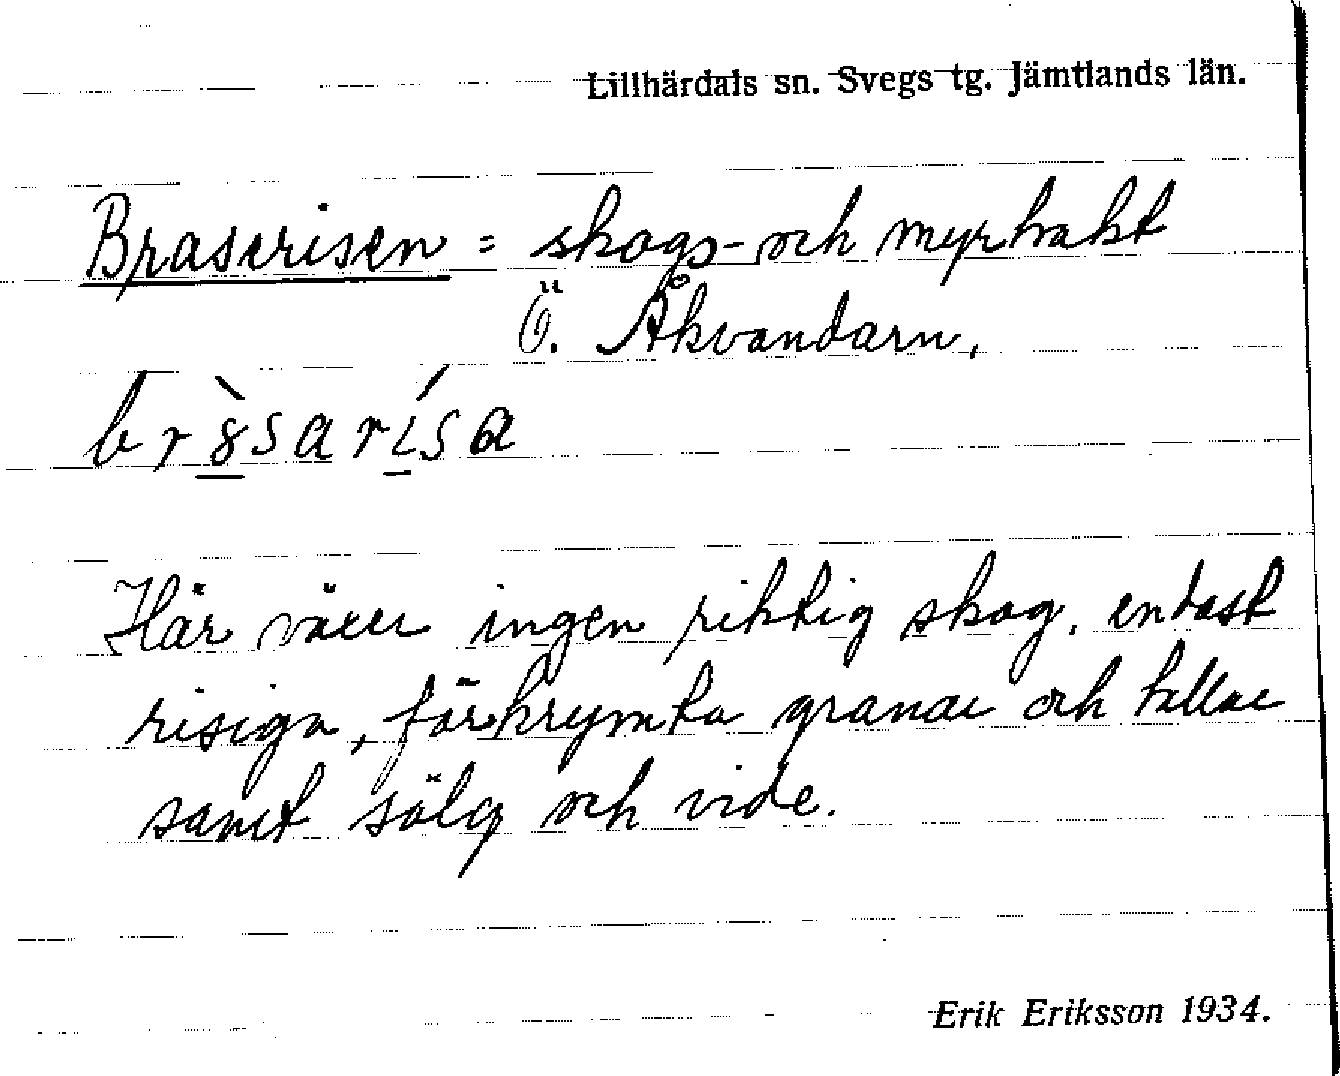 Lillhärdals sn. Svegs tg. Jämtlands län.
Braserisen = skogs- och myrtrakt
Ö. Åkvandarn,
br8̀sarísa
Här växer ingen riktig skog, endast
risiga, förkrympta granar och tallar
samt sälg och vide.
Erik Eriksson 1934.